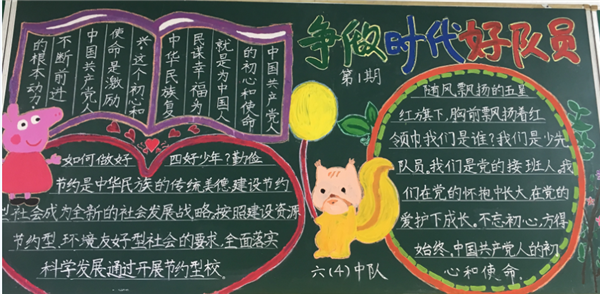 争做时代好队员
第1期
中国共产党人
的初心和使命
就是为中国人
民谋幸福为
中华民族复
兴这个初心和
使命是激励
中国共产党人
不断前进
的根本动力
如何做好 四好少年?勤俭
节约是中华民族的传统美德,建设节约
型社会成为全新的社会发展战略,按照建设资源
节约型、环境友好型社会的要求,全面落实
科学发展,通过开展节约型校。
六(4)中队
随风飘扬的五星
红旗下,胸前飘扬着红
领巾我们是谁?我们是少先
队员,我们是党的接班人,我
们在党的怀抱中长大,在党的
爱护下成长。不忘初心,方得
始终,中国共产党人的初
心和使命.